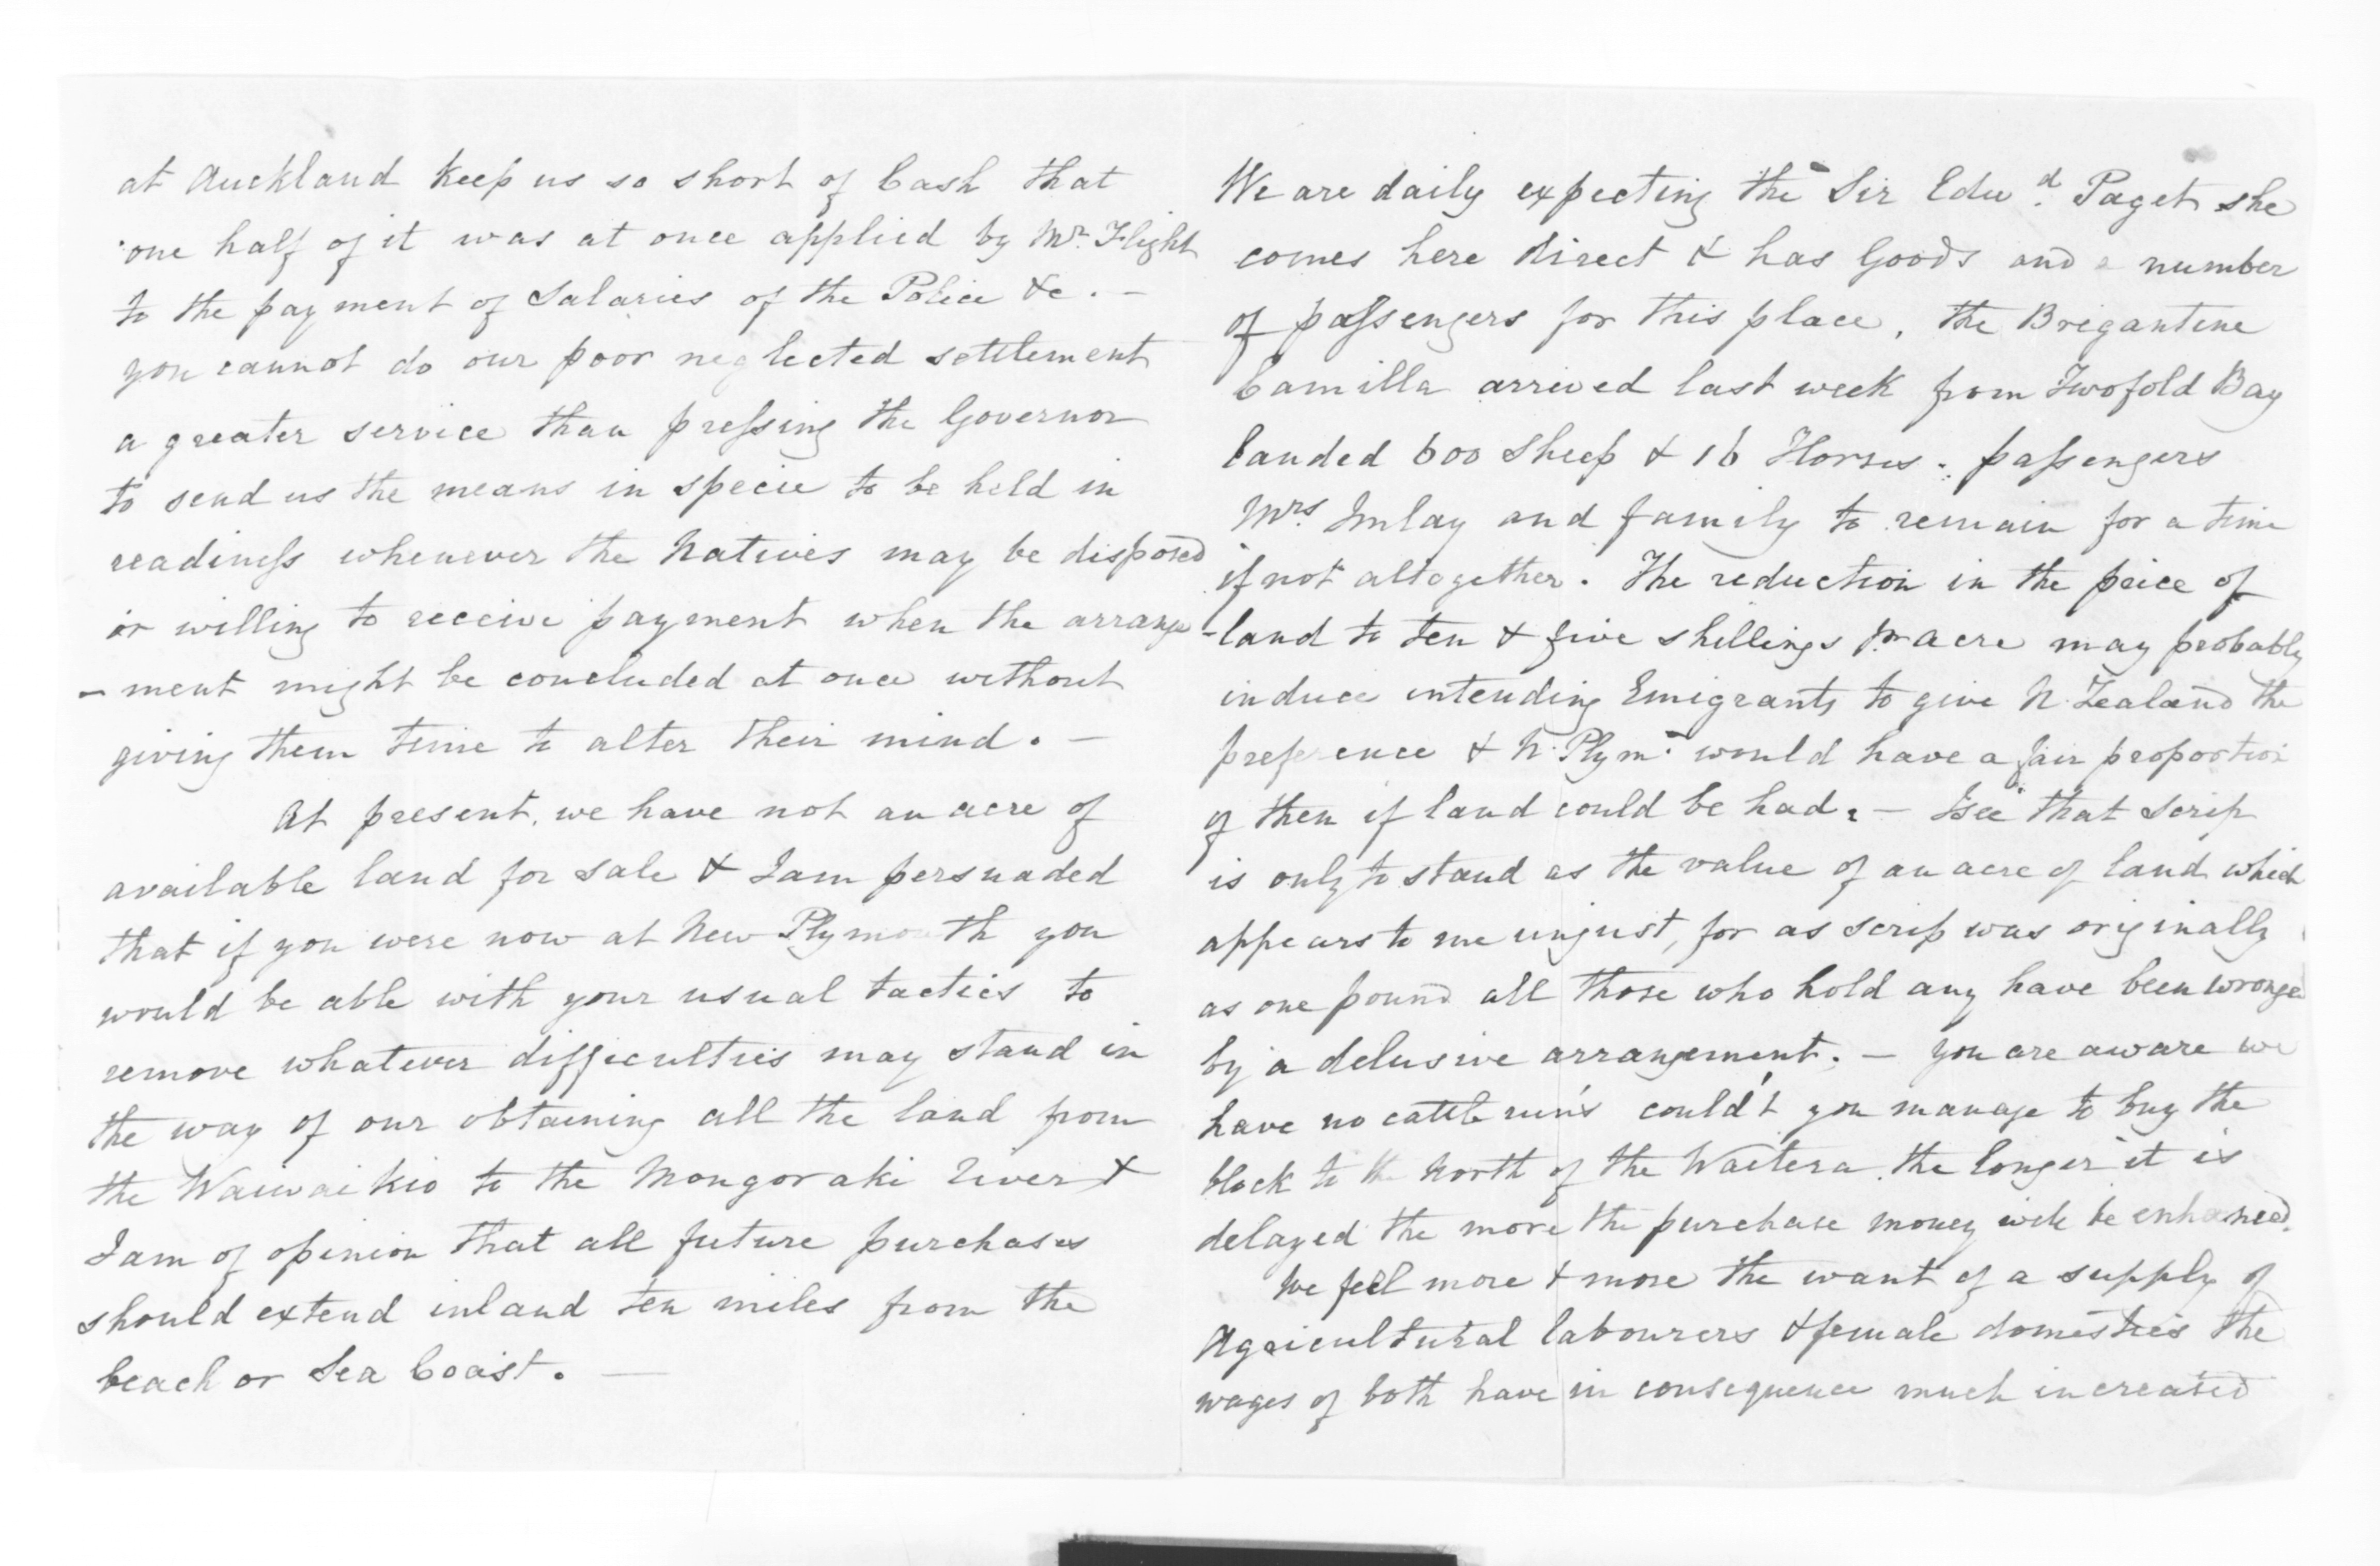 at Auckland keep us so short of Cash that
one half of it was at once applied by Mr. Flight
to the payment of Salaries of the Police &c. —
you cannot do our poor neglected settlement
a greater service than pressing the Governor
to send us the means in specie to be held in
readiness whenever the Natives may be disposed
or willing to receive payment when the arrange
- ment might be concluded at once without
giving them time to alter their mind. —
At present, we have not an acre of
available land for sale & I am persuaded
that if you were now at New Plymouth you
would be able with your usual tactics to
remove whatever difficulties may stand in
the way of our obtaining all the land from
the Waiwaikio to the Mongoraki River &
I am of opinion that all future purchases
should extend inland ten miles from the
beach or Sea Coast. —
We are daily expecting the Sir Edwd. Paget she
comes here direct & has Goods and a number
of passengers for this place, the Brigantine
Camilla arrived last week from Twofold Bay
landed 600 Sheep & 16 Horses. passengers
Mrs. Imlay and family to remain for a time
if not altogether. The reduction in the price of
- land to ten & five shillings pr. acre may probably
induce intending Emigrants to give N. Zealand the
preference & N. Plym. would have a fair proportion
of then if land could be had. — I see that scrip
is only to stand as the value of an acre of land which
appears to me unjust, for as scrip was originally
as one pound all those who hold any have been wronged
by a delusive arrangement. — you are aware we
have no cattle runs could't you manage to buy the
block to the North of the Waitera. the longer it is
delayed the more the purchase money will be enhanced.
We feel more & more the want of a supply of
Agricultural labourers & female domestics the
wages of both have in consequence much increased